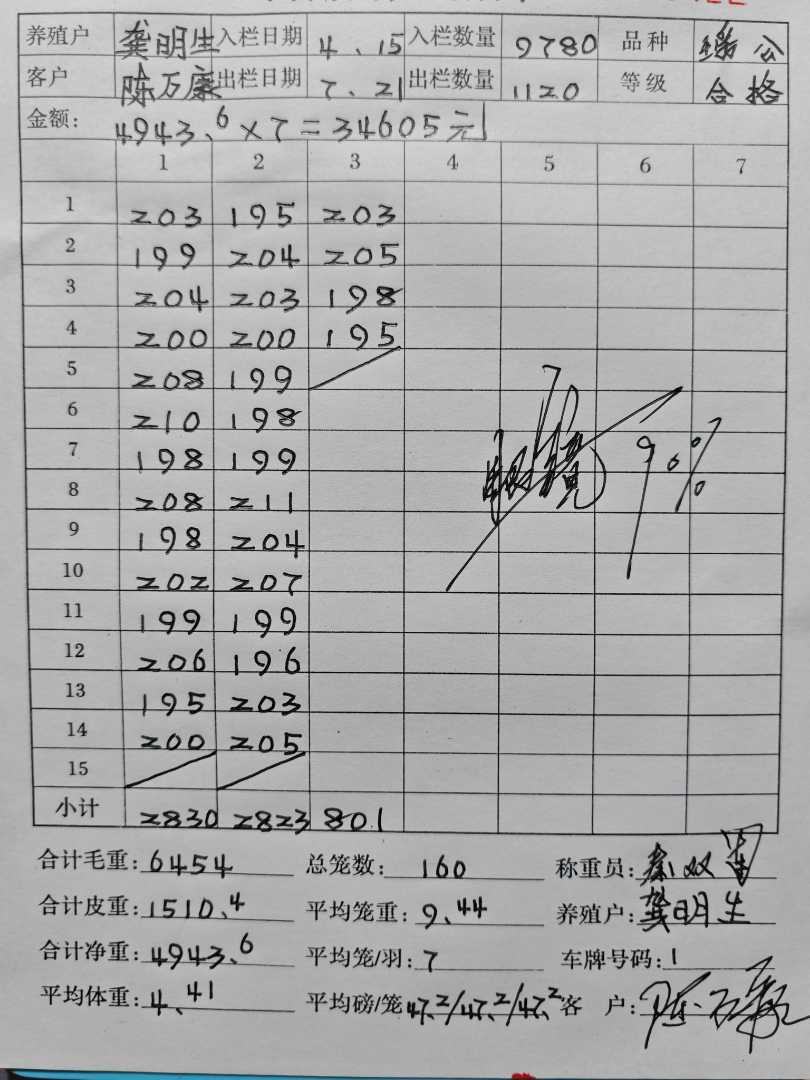 养殖户 龚明生 入栏日期 4.15 入栏数量 9780 品种 瑞公
客户 陈万康 出栏日期 7.21 出栏数量 1120 等级 合格
金额: 4943.6×7=34605元
1 2 3 4 5 6 7
1 203 195 203
2 199 204 205
3 204 203 198
4 200 200 195
5 208 199
6 210 198
7 198 199
8 208 211
9 198 204
10 202 207
11 199 199
12 206 196
13 195 203
14 200 205
15
90%
小计 2830 2823 801
合计毛重: 6454 总笼数: 160 称重员: 秦双
合计皮重: 1510.4 平均笼重: 9.44 养殖户: 龚明生
合计净重: 4943.6 平均笼/羽: 7 车牌号码: 1
平均体重: 4.41 平均磅/笼 47.2/47.2/47.2 客 户: 陈万康